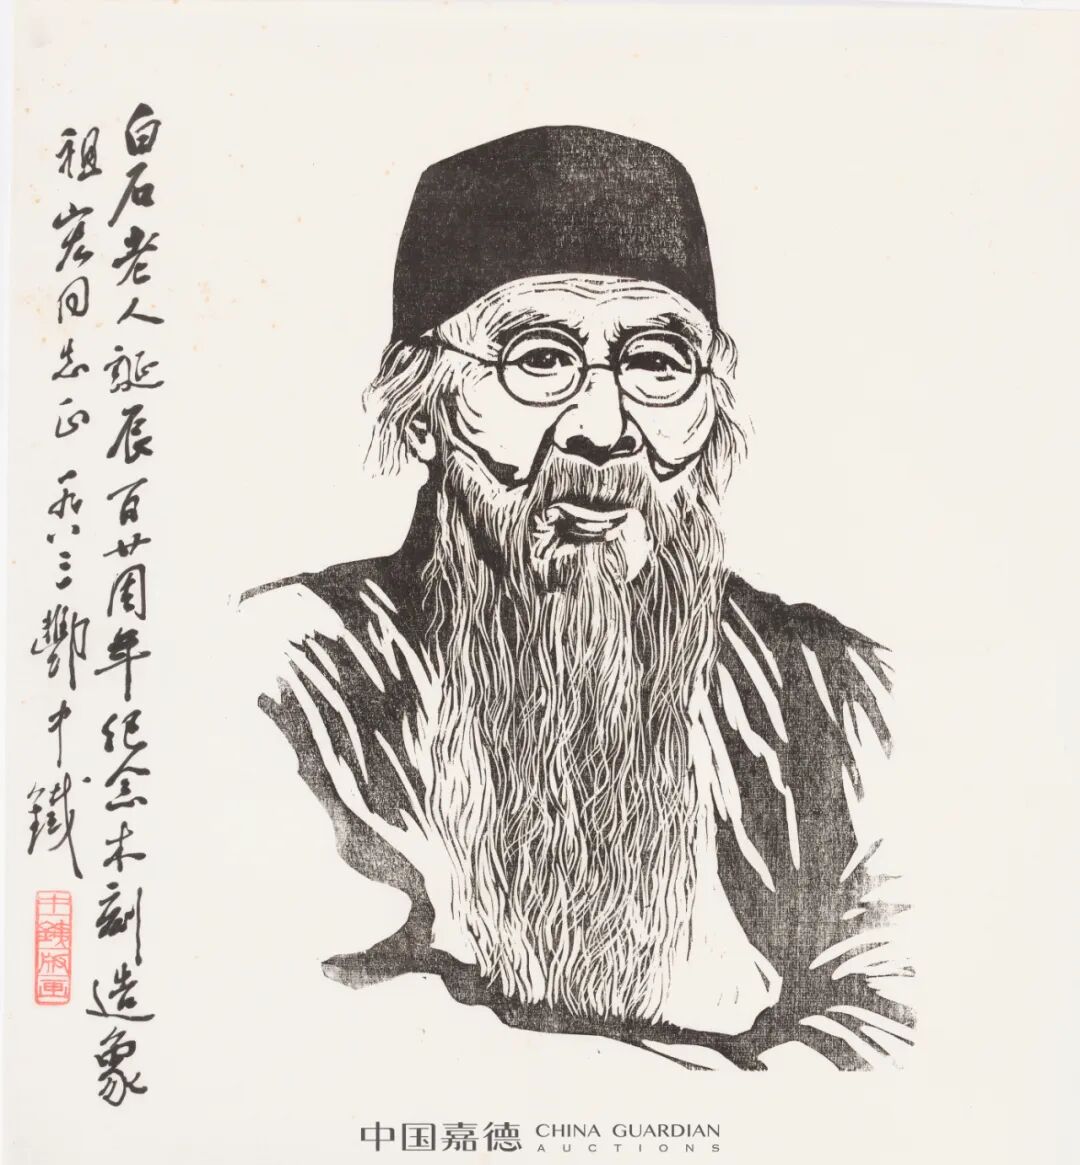 白石老人诞辰百廿周年纪念木刻造象
祖宏同志正 一九八三 酆中鐵
中鐵版画
中国嘉德 CHINA GUARDIAN
AUCTIONS